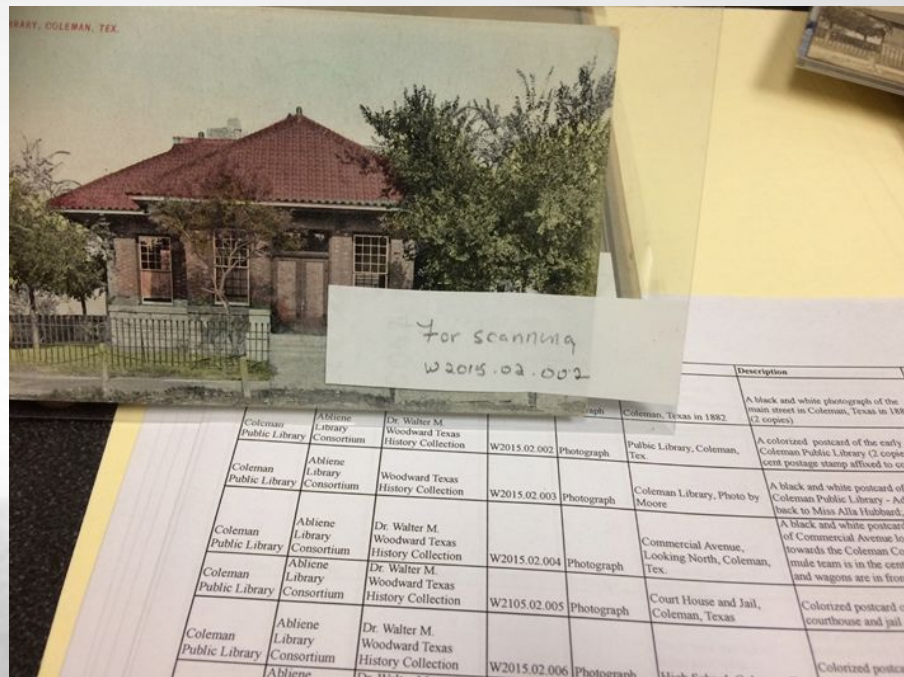 RARY, COLEMAN, TEX.
For scanning
W2015.02.002
Description
Coleman, Texas in 1882
A black and white photograph of the
main street in Coleman, Texas in 188
(2 copies)
Coleman
Public Library
Abliene
Library
Consortium
Dr. Walter M.
Woodward Texas
History Collection
W2015.02.002
Photograph
Pulbic Library, Coleman,
Tex.
A colorized postcard of the early
Coleman Public Library (2 copie
cent postage stamp affixed to
Coleman
Public Library
Abliene
Library
Consortium
Woodward Texas
History Collection
W2015.02.003
Photograph
Coleman Library, Photo by
Moore
A black and white postcard of
Coleman Public Library - Ad
back to Miss Alla Hubbard,
Coleman
Public Library
Abliene
Library
Consortium
Dr. Walter M.
Woodward Texas
History Collection
W2015.02.004
Photograph
Commercial Avenue,
Looking North, Coleman,
Tex.
A black and white postcard
of Commercial Avenue lo
towards the Coleman Co
mule team is in the cent
and wagons are in fron
Coleman
Public Library
Abliene
Library
Consortium
Dr. Walter M.
Woodward Texas
History Collection
W2105.02.005
Photograph
Court House and Jail,
Coleman, Texas
Colorized postcard o
courthouse and jail
Coleman
Public Library
Abliene
Library
Consortium
Dr. Walter M.
Woodward Texas
History Collection
W2015.02.006
Photograph
Colorized postca
Abliene